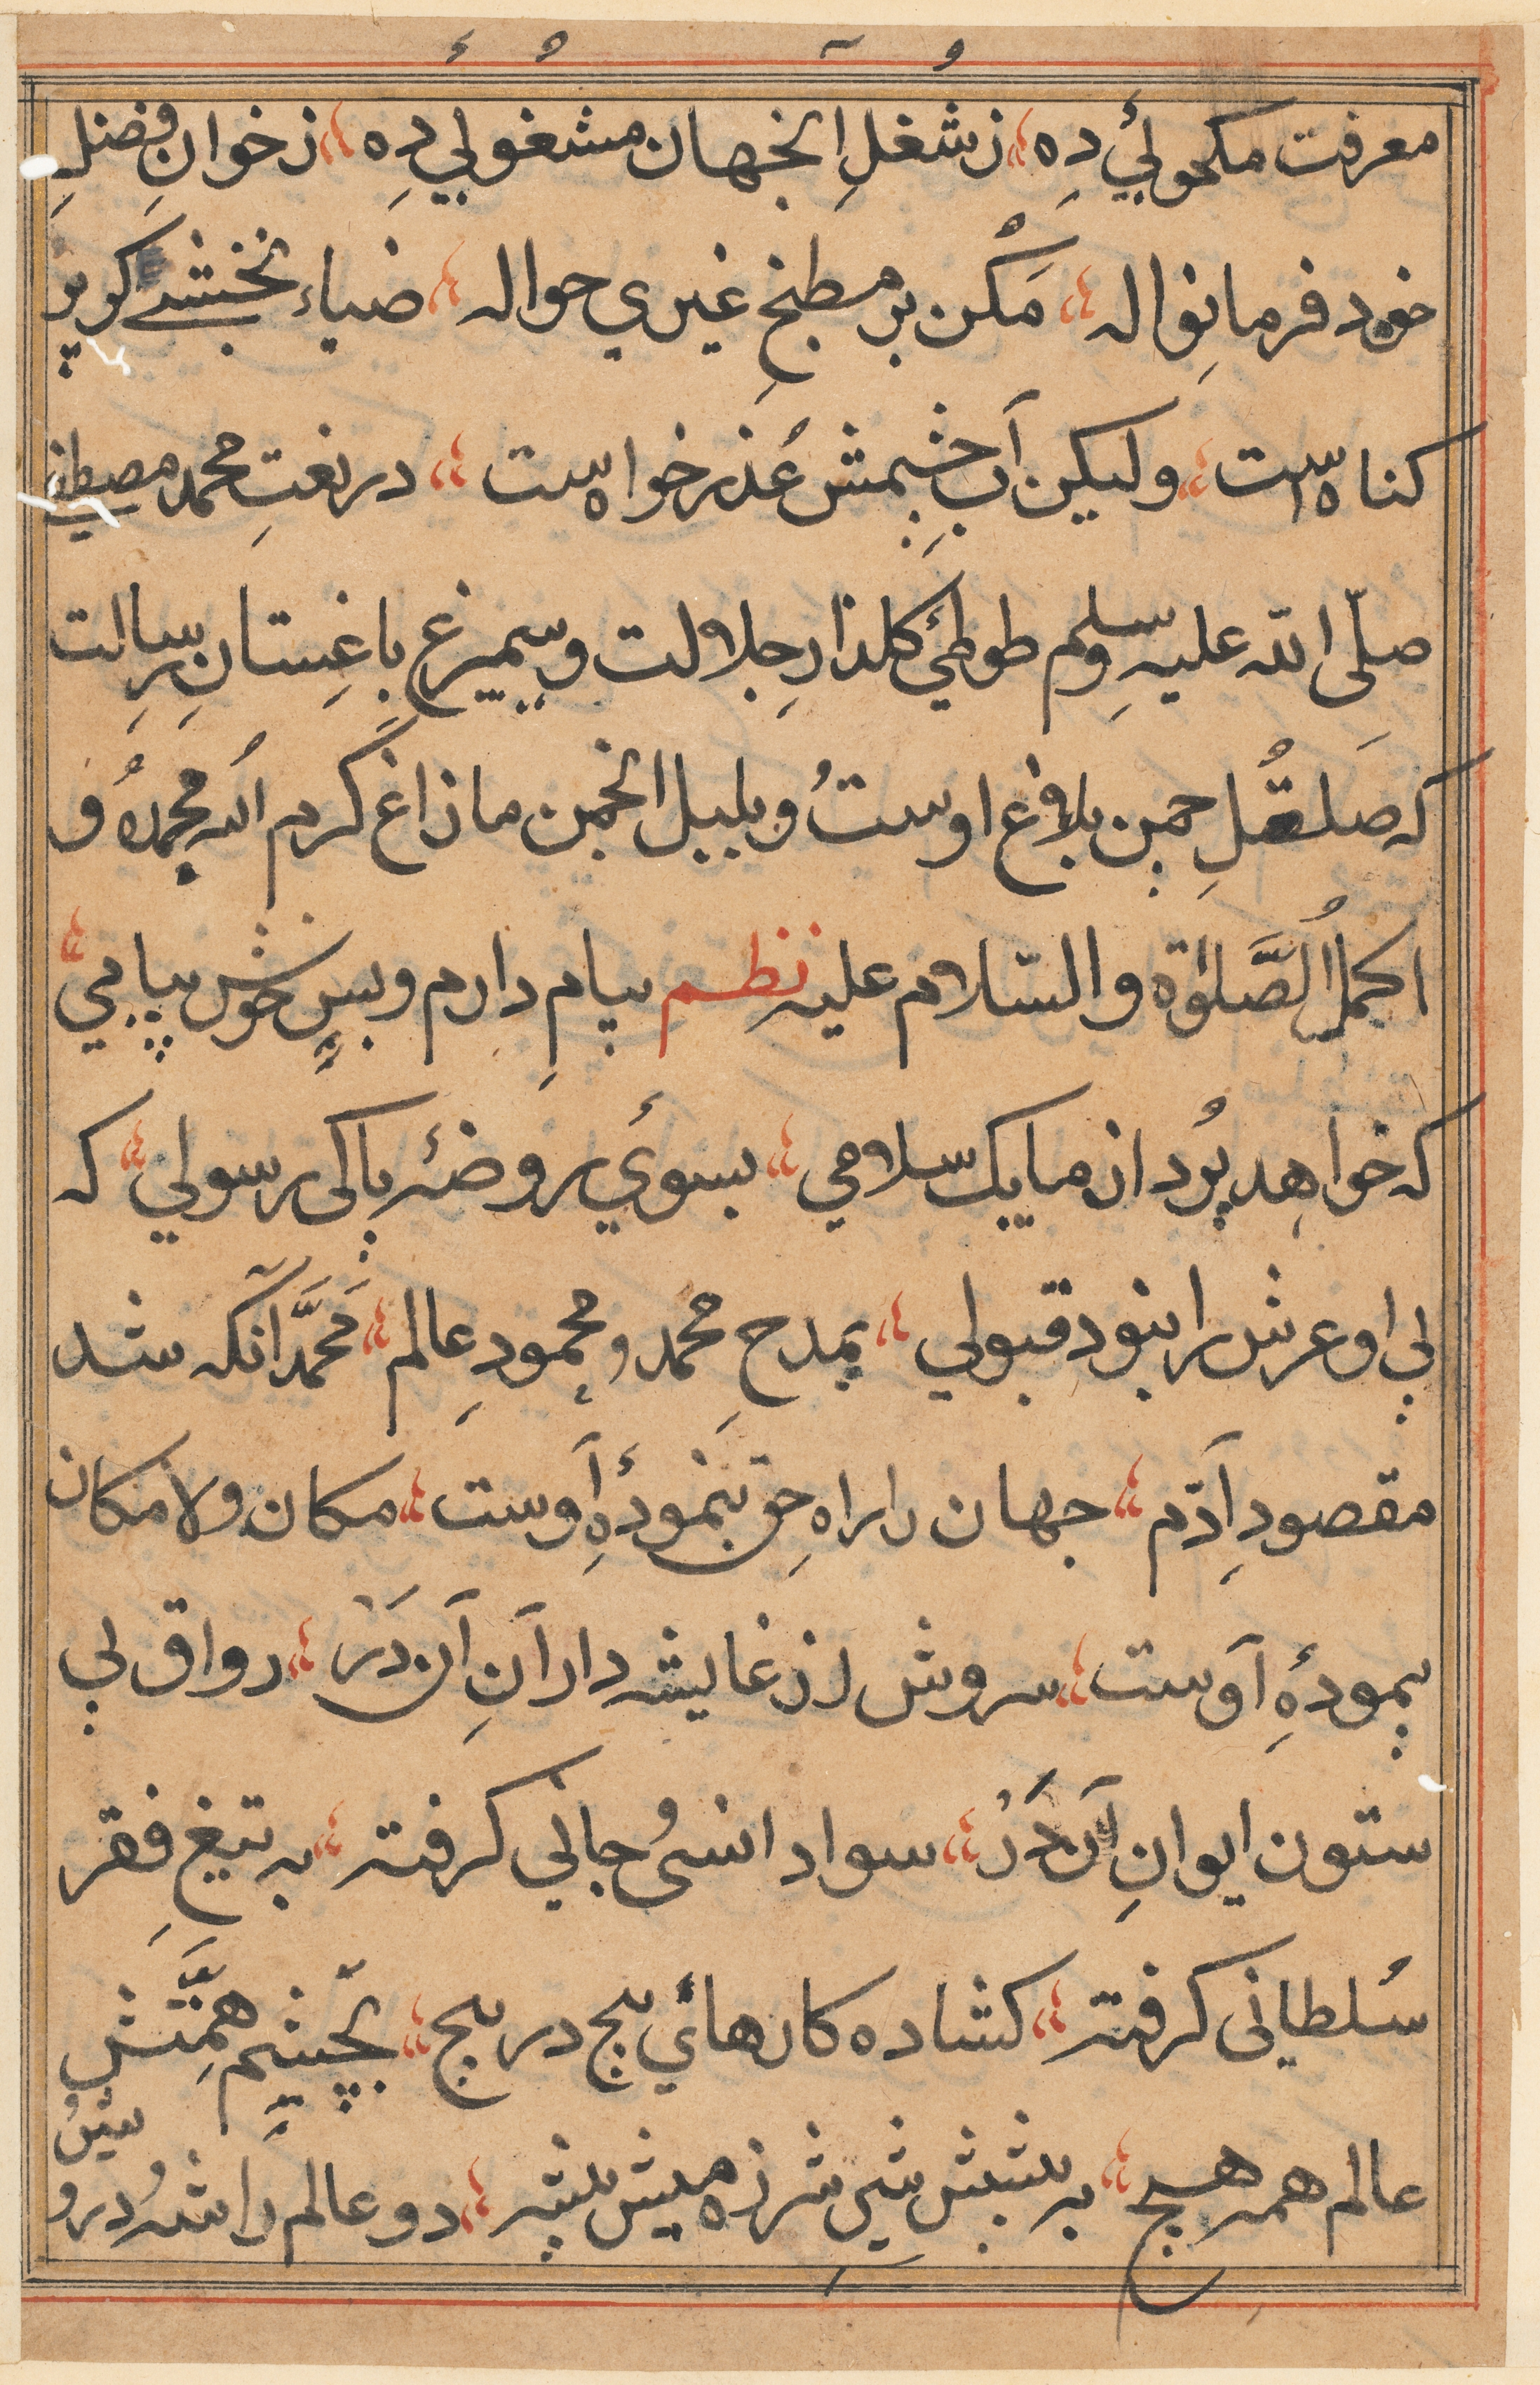 معرفت مکحولیٔ دِه ؛ ز شغلِ انجهان مشغولي دِه ؛ ز خوانِ فضلِ
خود فرما نِواله ؛ مَکُن بر مطبخِ غیري حواله ؛ ضیاء نخشبي کو پر
کناه است ؛ ولیکن آبِ چشِمش عُذر خواه ست ؛ در نعتِ محمد مصطفي
صلّی الله علیه وسلم طوطئ کلذارِ جلالت و سیمرغِ باغِستانِ رِسالت
که صَلصُلِ چمن بلاغ اوستُ و بلبل انجمن ما زاغ کرم الله محمدهُ و
اکملُ الصَّلوٰة والسّلام علیه نظم پیامِ دارم و بس خوش پیامي ؛
که خواهد بُرد از ما یک سلامي ؛ بسوئي روضهٔ پاکی رسولي ؛ که
بي او عرش را نبود قبولي ؛ بمدحِ محمد و محمودِ عالم ؛ محَمَّد آنکه شد
مقصودِ آدَم ؛ جهان را راهِ حق بنمودهٔ اوست ؛ مکان ولا مکان
پیمودهٔ اوست ؛ سروش از غاشیه دارانِ آن دَرْ ؛ رواق بي
ستون ایوانِ آن دَرْ ؛ سواد انسُ جاني کرفته ؛ به تیغِ فقر
سُلطانی کرفته ؛ کشاده کارهائي پیچ در پیچ ؛ بچشمِ همَّتش
عالم همه هیچ ؛ به پیشش شیرِ شرزه میش پیشه ؛ دو عالم را شهُ درو